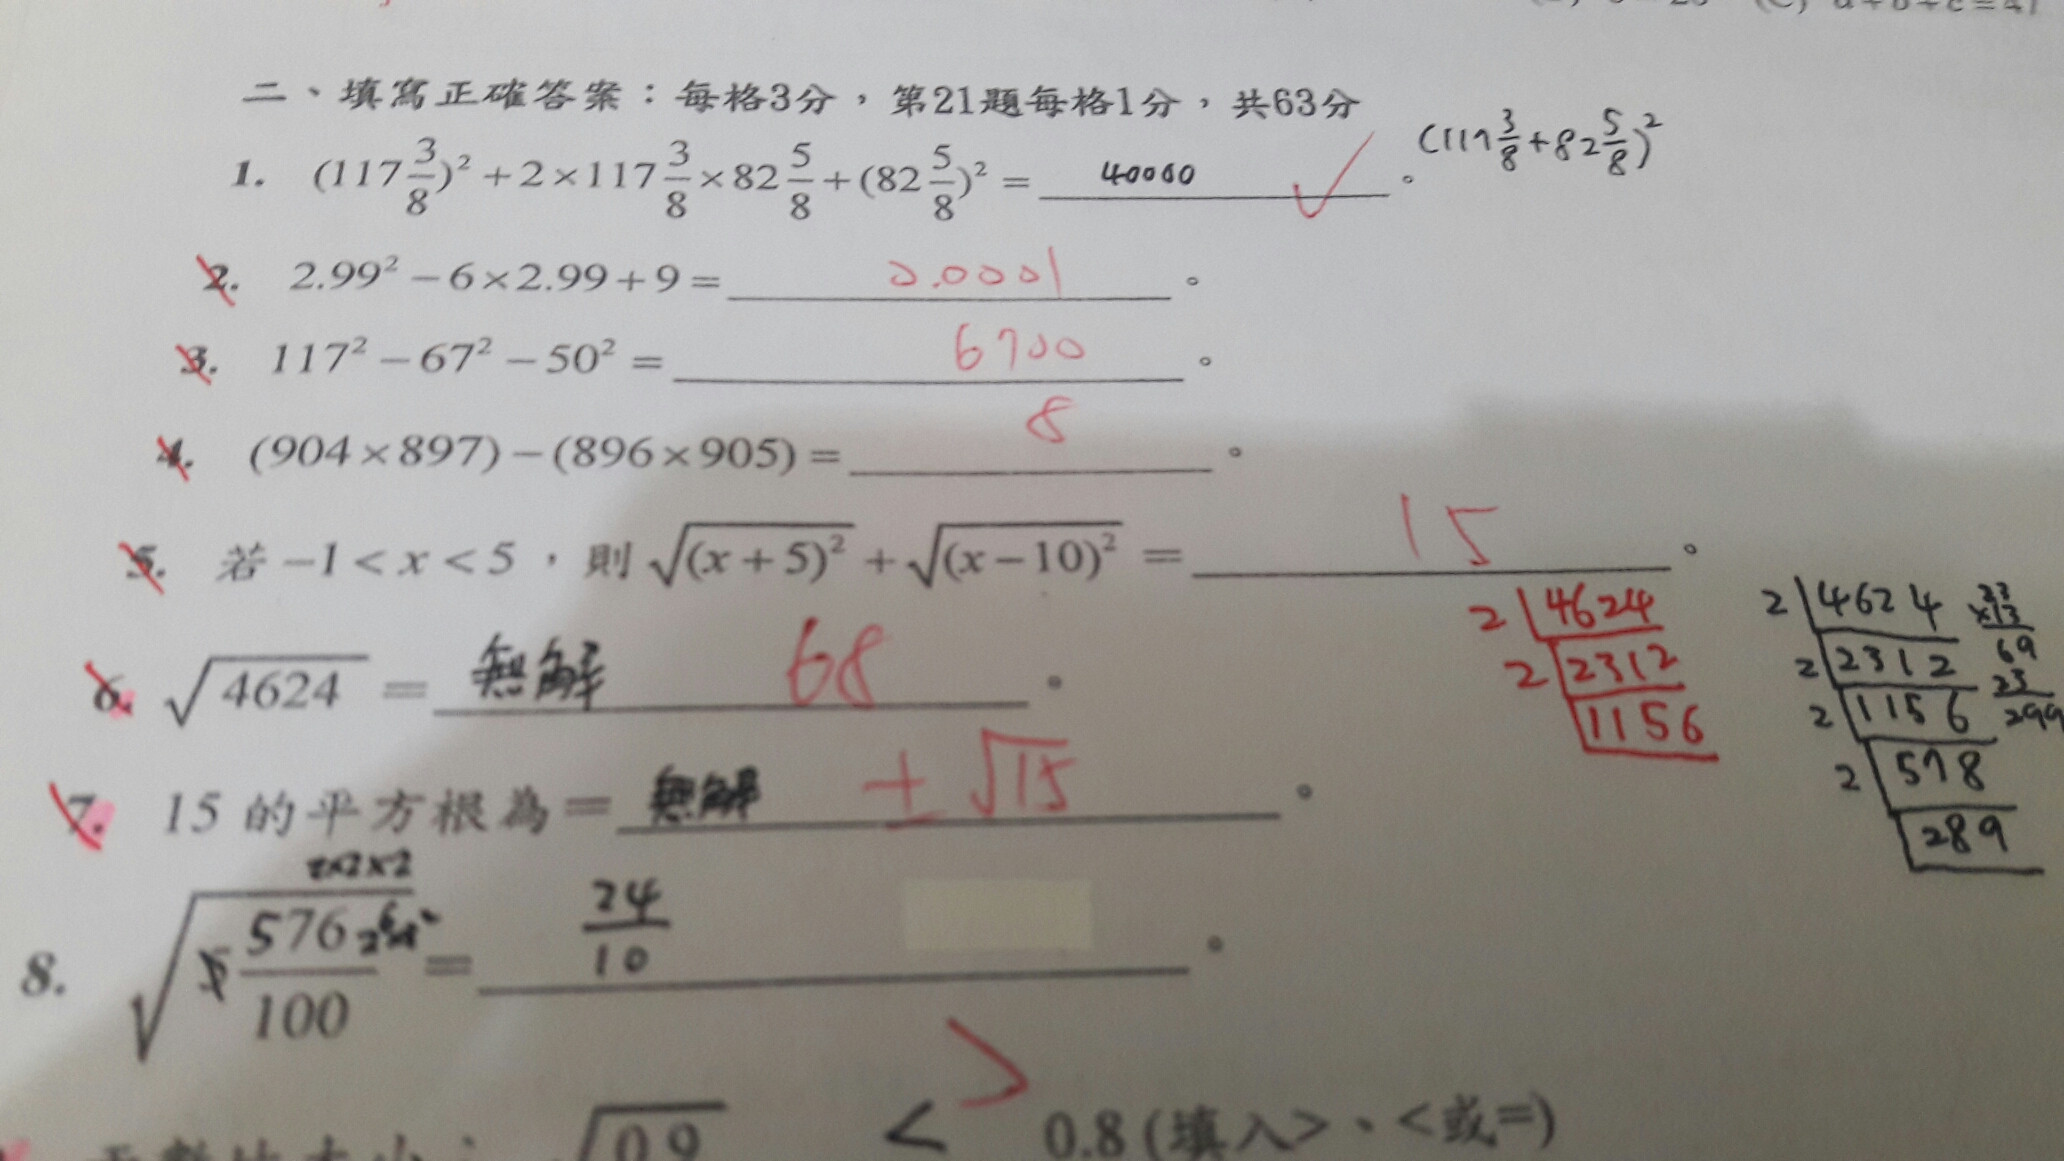 二、填寫正確答案：每格3分，第21題每格1分，共63分
1. (117 3/8)² + 2×117 3/8×82 5/8+(82 5/8)² = 40000 。 (117 3/8+82 5/8)²
2. 2.99² − 6×2.99+9 = 0.0001 。
3. 117² − 67² − 50² = 6700 。
4. (904×897)−(896×905) = 8 。
5. 若 −1 < x < 5，則 √(x+5)² + √(x−10)² = 15 。
6. √4624 = 無解 68 。
2 4624
2 2312
1156
2 4624
2 2312
2 1156
2 578
289
23
×13
69
23
299
7. 15 的平方根為= 無解 ±√15 。
2×2×2
8. √576/100 = 24/10 。
√0.9 < > 0.8 (填入>、<或=)